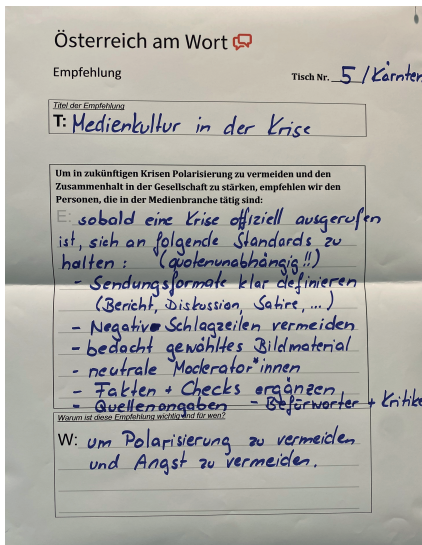 Österreich am Wort
Empfehlung
Tisch Nr. 5 / Kärnten
Titel der Empfehlung
T: Medienkultur in der Krise
Um in zukünftigen Krisen Polarisierung zu vermeiden und den
Zusammenhalt in der Gesellschaft zu stärken, empfehlen wir den
Personen, die in der Medienbranche tätig sind:
E: sobald eine Krise offiziell ausgerufen
ist, sich an folgende Standards zu
halten: (quotenunabhängig!!)
- Sendungsformate klar definieren
(Bericht, Diskussion, Satire, ...)
- Negativ Schlagzeilen vermeiden
- bedacht gewähltes Bildmaterial
- neutrale Moderator*innen
- Fakten + Checks ergänzen
- Quellenangaben - Befürworter + Kritike
Warum ist diese Empfehlung wichtig und für wen?
W: um Polarisierung zu vermeiden
und Angst zu vermeiden.